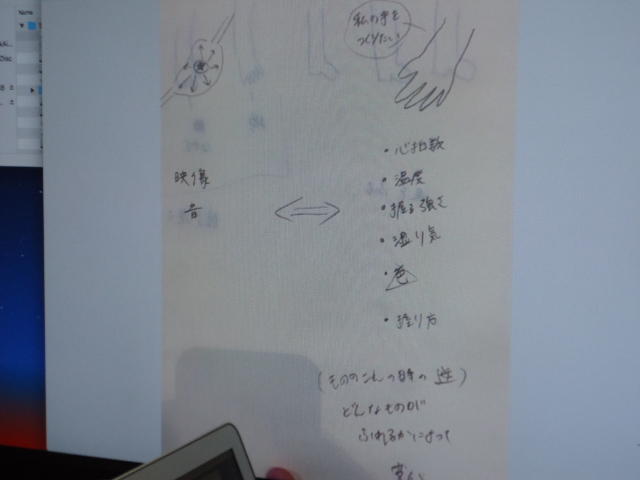 Name
Disc
私の手を
つくりたい
映像
音
・心拍数
・温度
・握る強さ
・湿り気
・色
・握り方
(もののこんの日本の逆)
どんなものが
ふれるかによって